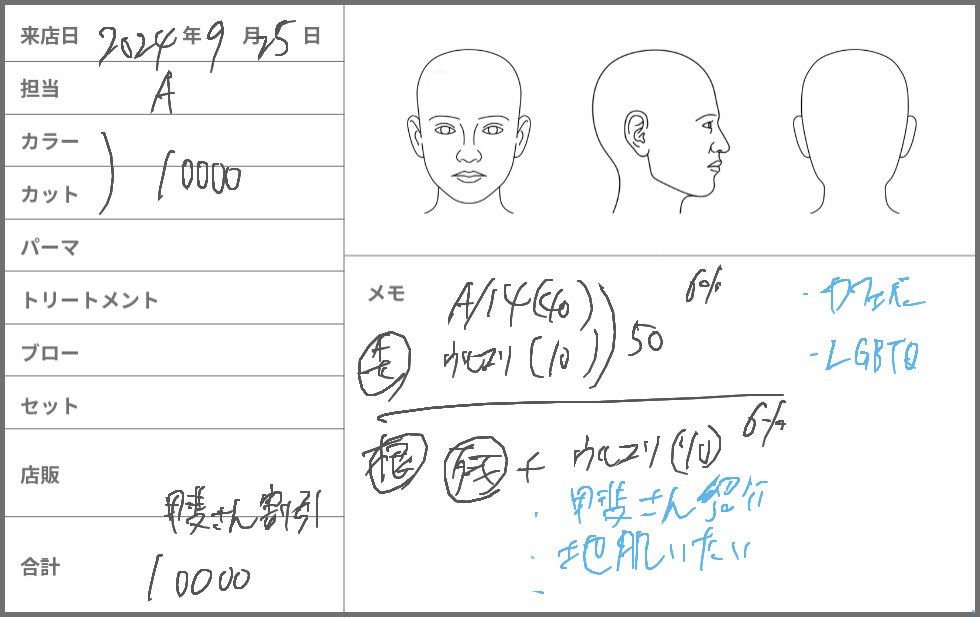 来店日 2024年9月25日
担当 A
カラー
カット
) 10000
パーマ
トリートメント
ブロー
セット
店販
甲斐さん割引
合計 10000
メモ
A/14 (40)
ウルコリ (10)
50
6%
根 残 + ウルコリ (10)
6%
・甲斐さん紹介
・地肌いたい
-
・カフェバー
- LGBTQ